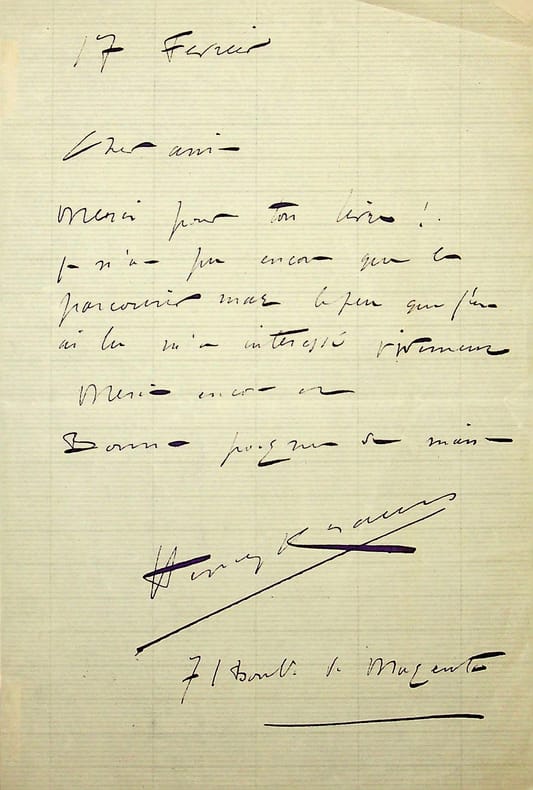 17 Fevrier
Cher ami
Merci pour ton livre !
je n'ai pu encore que le
parcourir mais le peu que j'en
ai lu m'a interessé vivement
Merci encore et
Bonne poignée de main
Henry
71 Boul. de Magenta